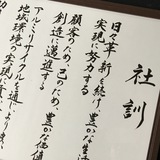 社訓
日々革新し続け、豊かな生活
実現に努力する
顧客のため、己のため、豊かな価値
創造に邁進する
アルミリサイクルを通じ
地球環境の実現